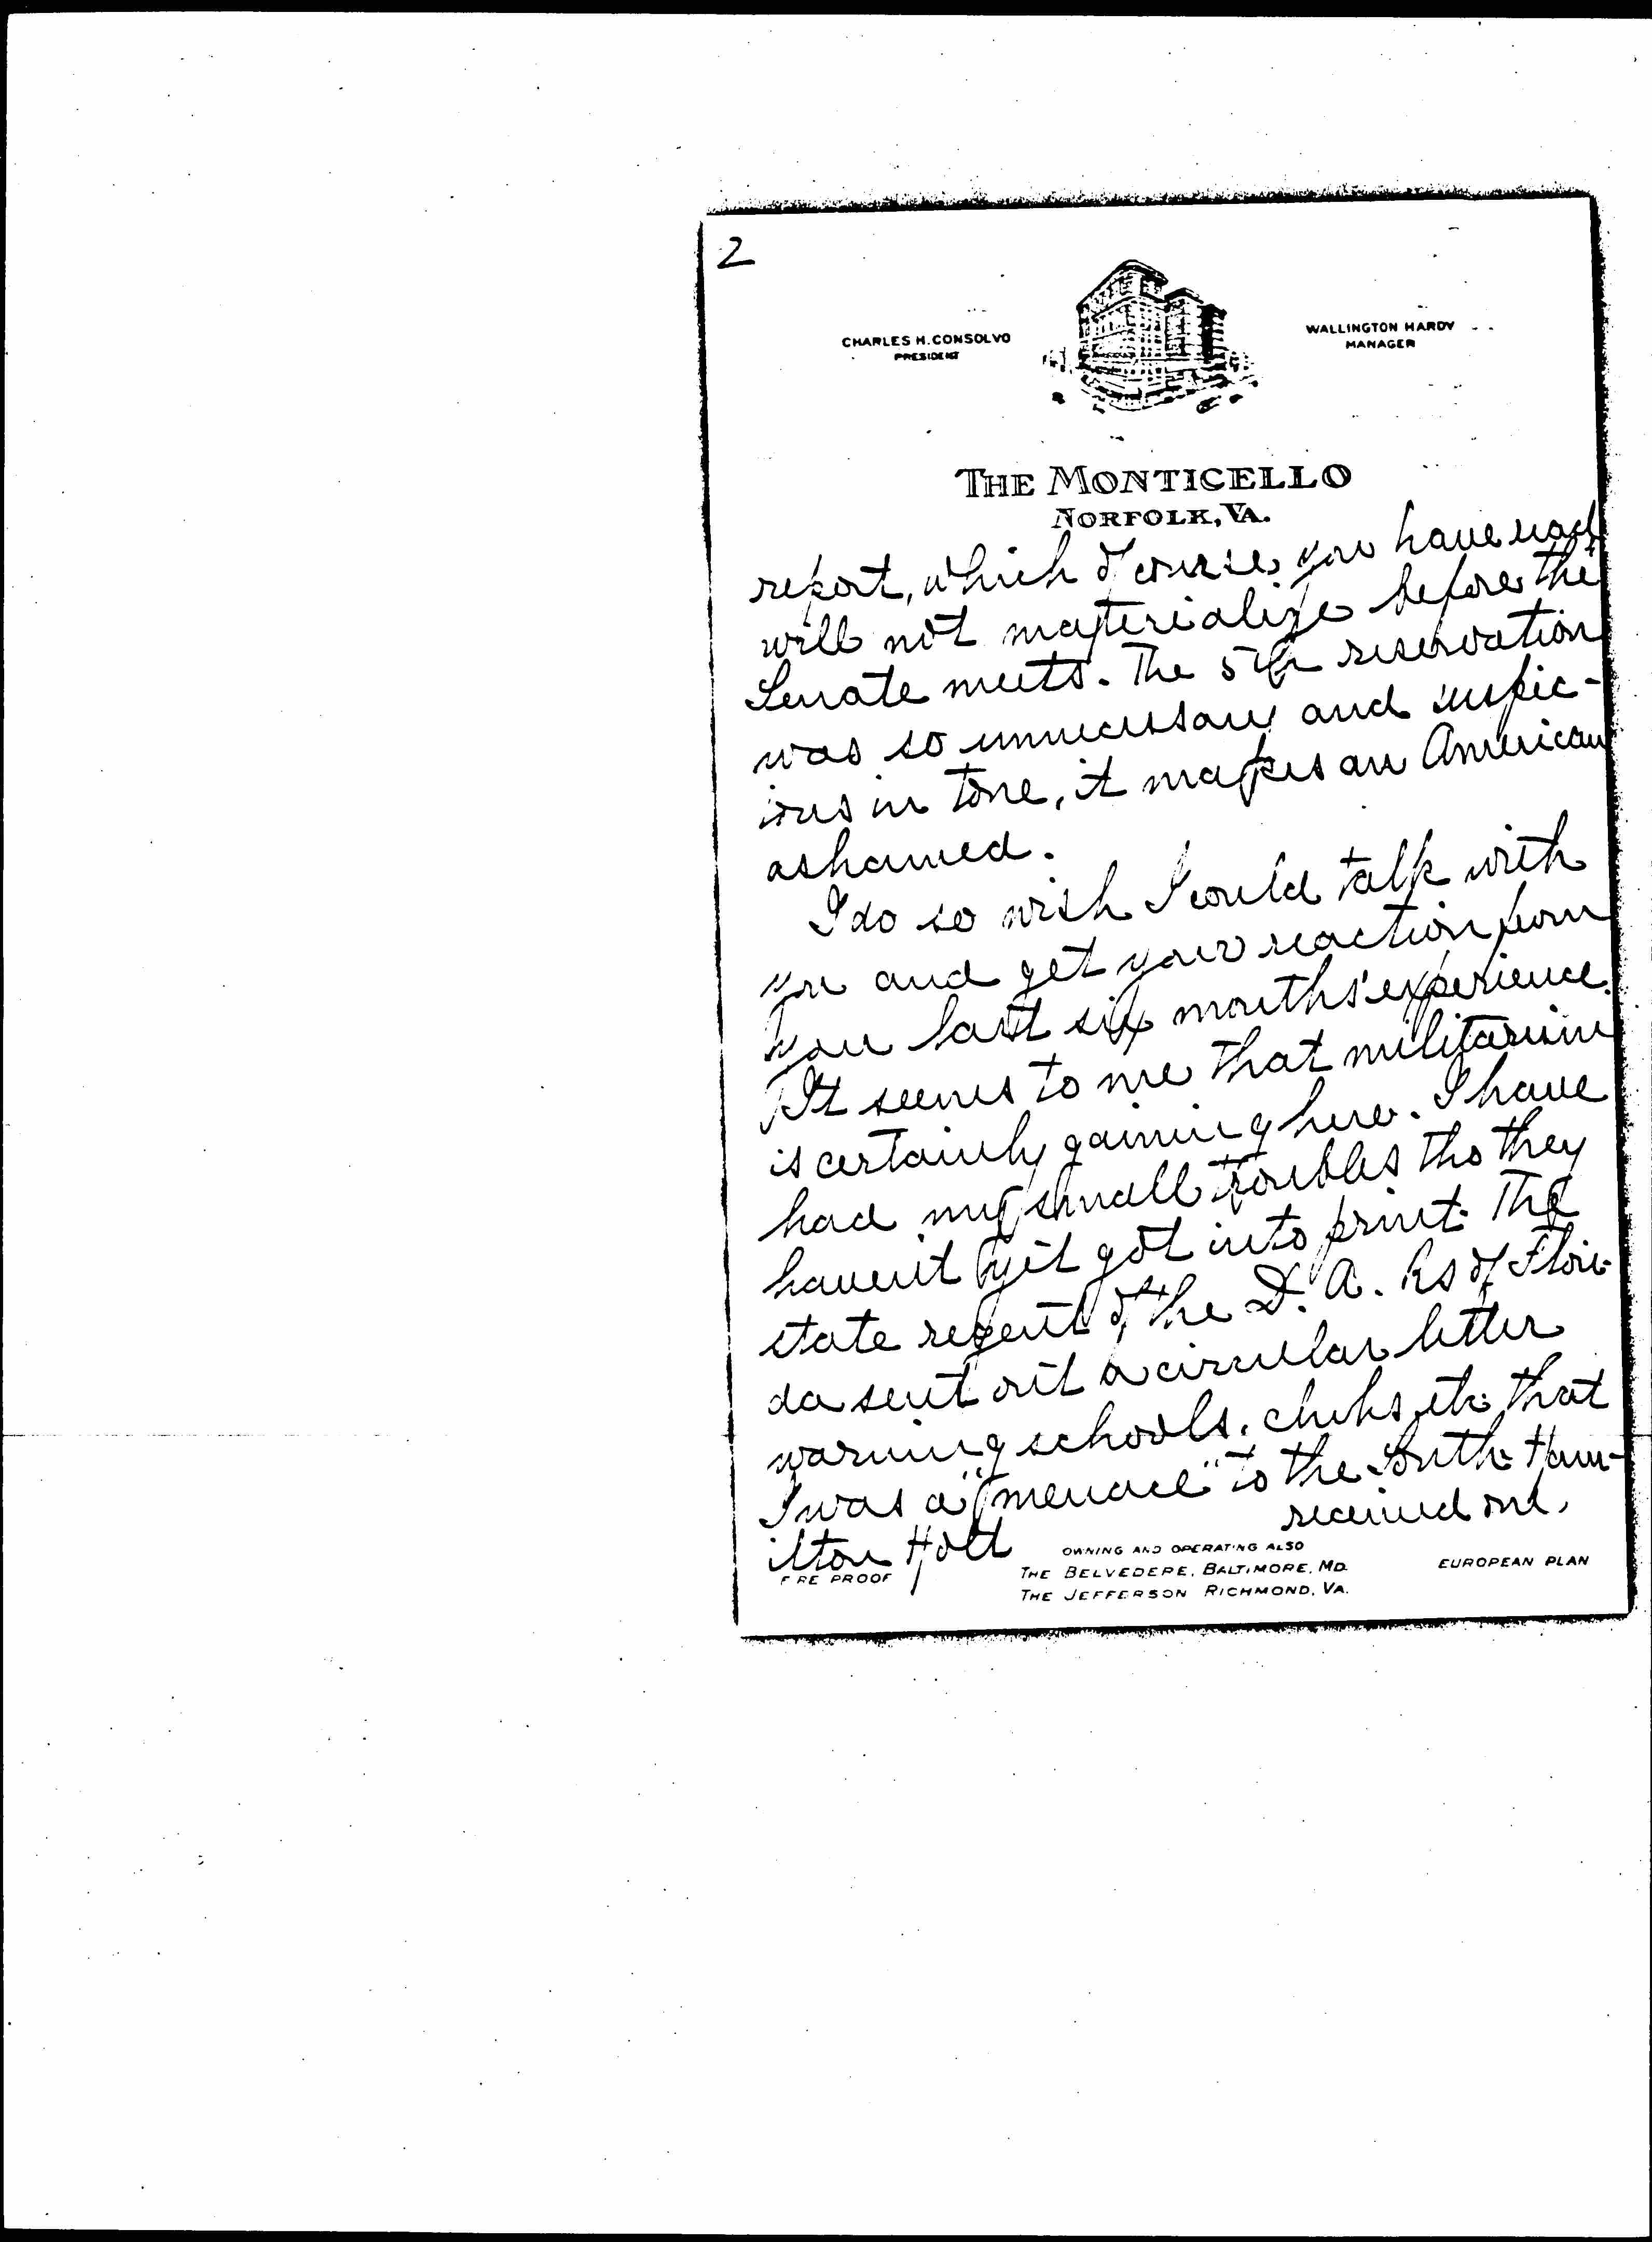 2
CHARLES H. CONSOLVO
PRESIDENT
WALLINGTON HARDY
MANAGER
THE MONTICELLO
NORFOLK, VA.
report, which of course you have read
will not materialize before the
Senate meets. The 5th reservation
was so unnecessary and suspic-
ious in tone, it makes an American
ashamed.
I do so wish I could talk with
you and get your reaction from
your last six months' experience.
It seems to me that militarism
is certainly gaining here. I have
had my small troubles tho they
havent yet got into print. The
state regent of the D. A. Rs of Flori-
da sent out a circular letter
warning schools, clubs etc that
I was a "menace" to the South. Ham-
ilton Holt received one.
FIRE PROOF
OWNING AND OPERATING ALSO
THE BELVEDERE, BALTIMORE, MD.
THE JEFFERSON RICHMOND, VA.
EUROPEAN PLAN